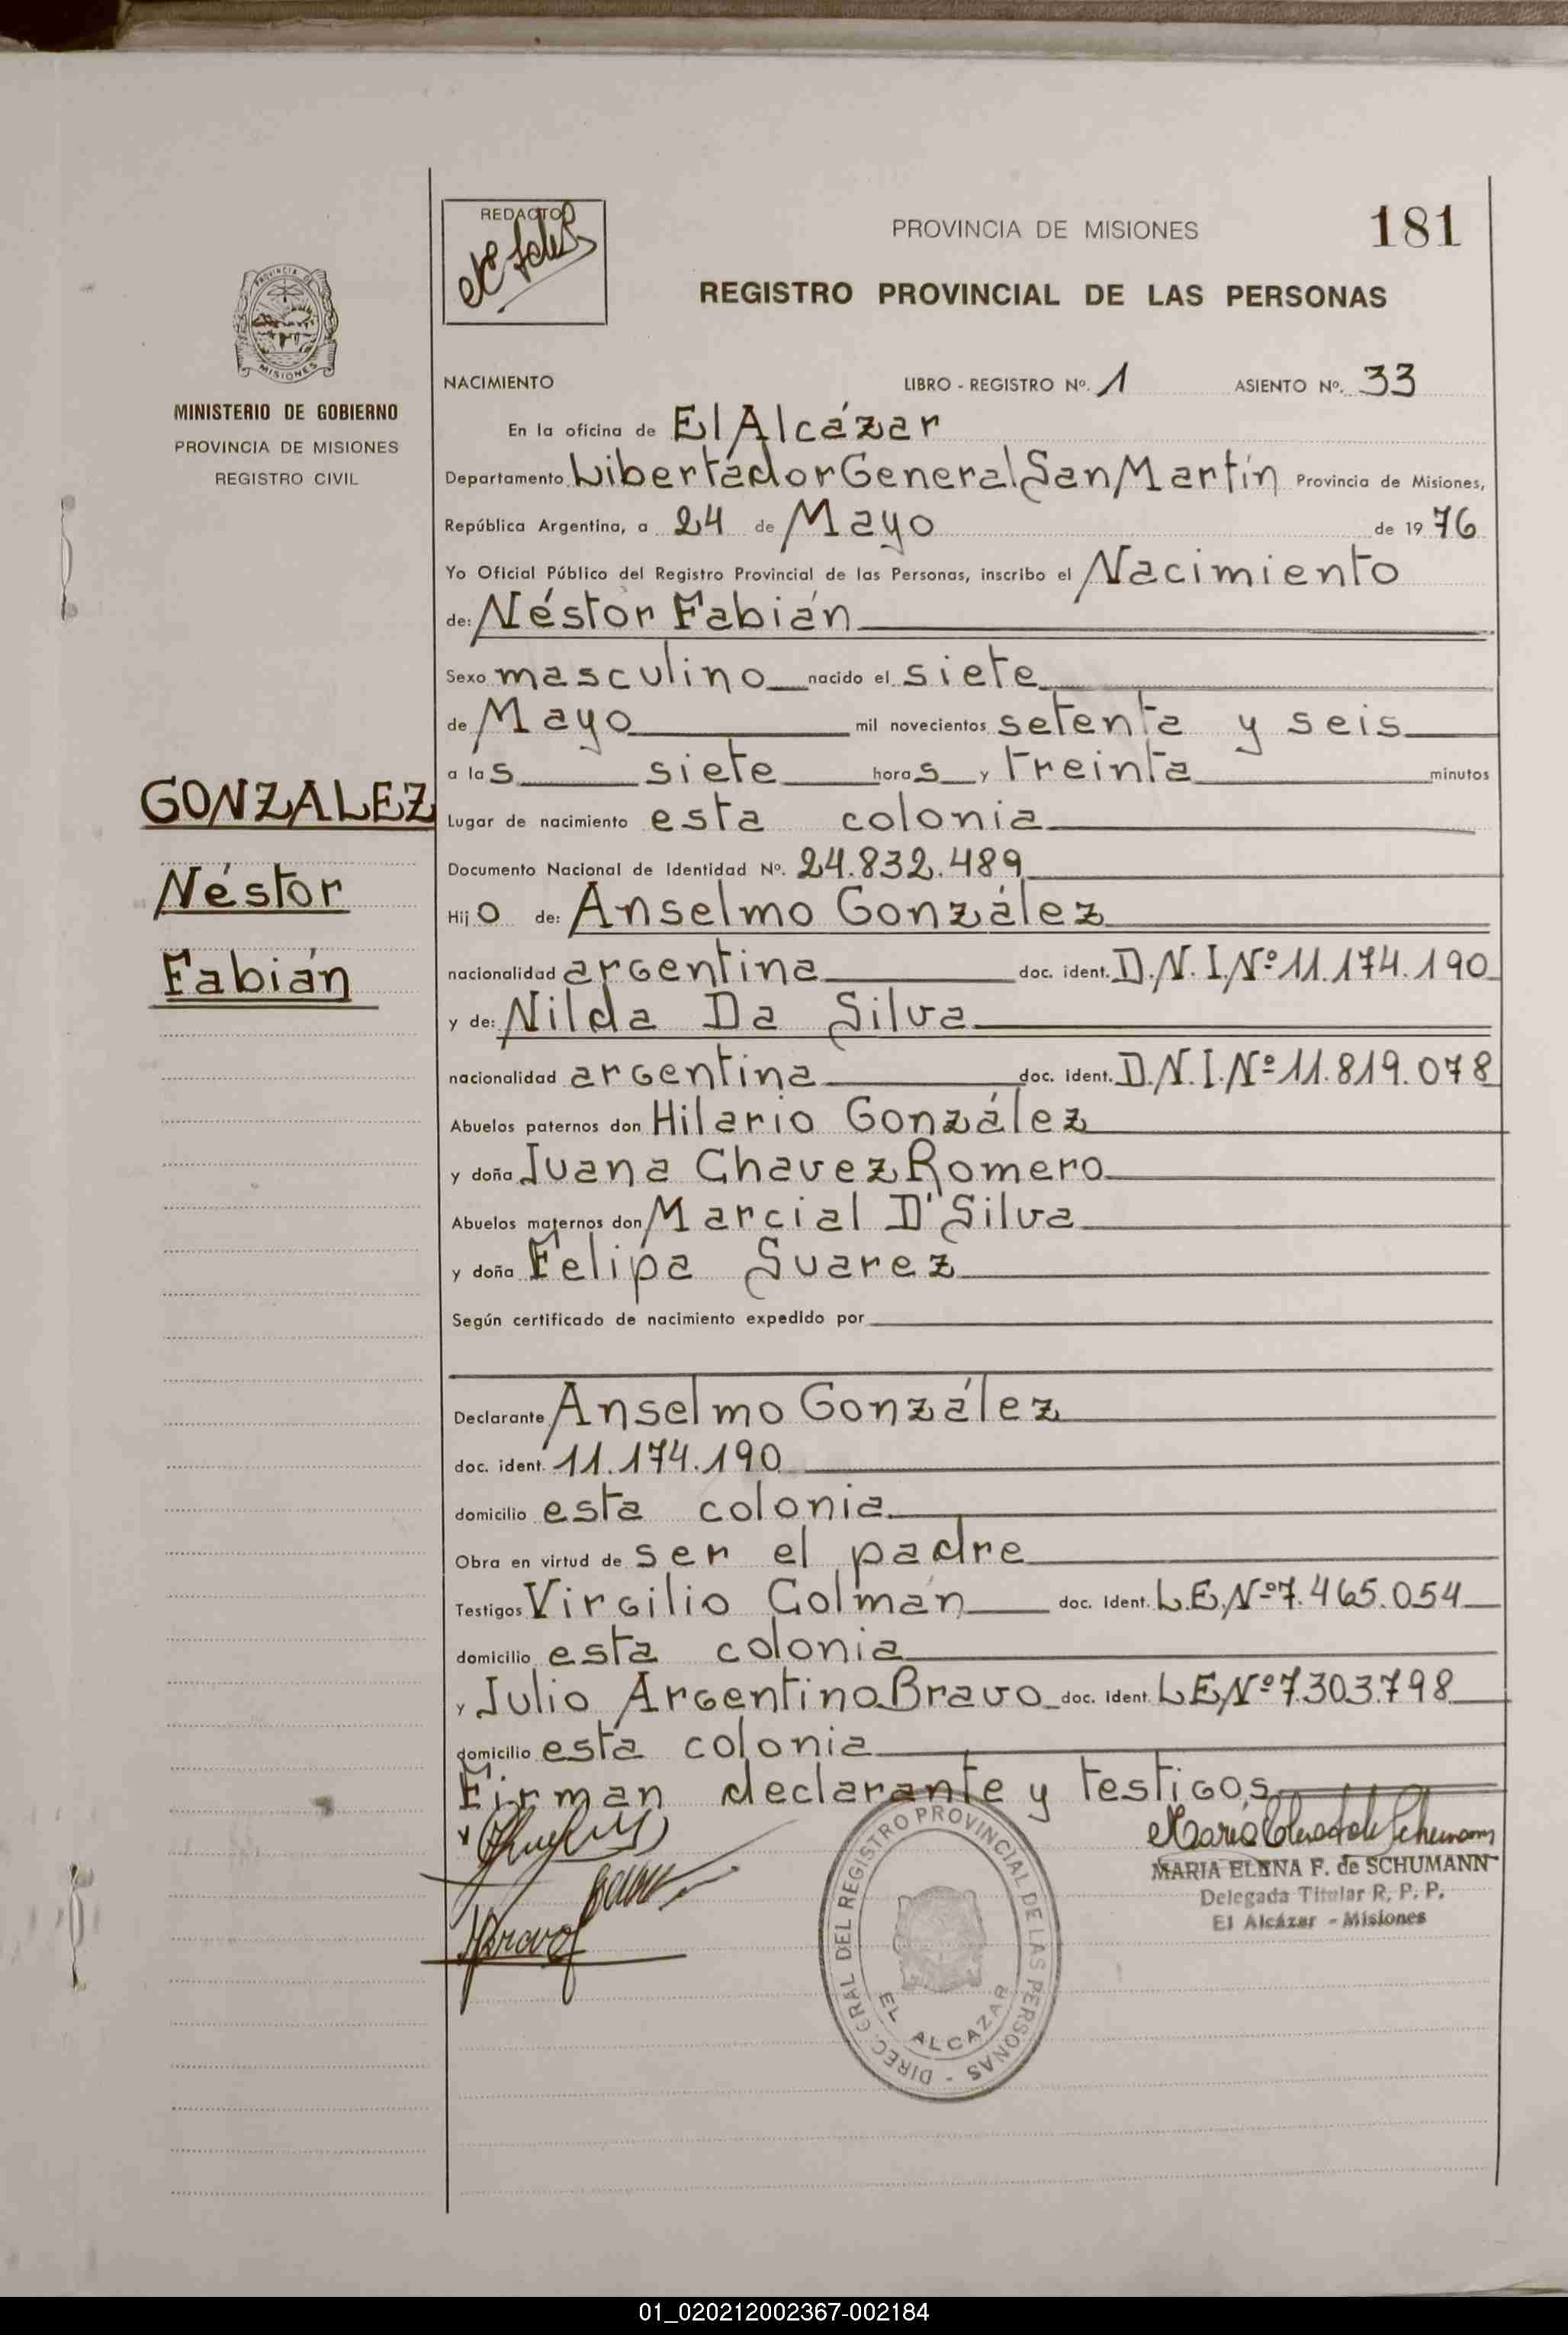 REDACTO
PROVINCIA DE MISIONES
181
REGISTRO PROVINCIAL DE LAS PERSONAS
PROVINCIA DE
MISIONES
MINISTERIO DE GOBIERNO
PROVINCIA DE MISIONES
REGISTRO CIVIL
NACIMIENTO LIBRO - REGISTRO Nº. 1 ASIENTO Nº. 33
En la oficina de El Alcázar
Departamento Libertador General San Martín Provincia de Misiones,
República Argentina, a 24 de Mayo de 1976
Yo Oficial Público del Registro Provincial de las Personas, inscribo el Nacimiento
de: Néstor Fabián
Sexo masculino nacido el siete
de Mayo mil novecientos setenta y seis
a las siete horas y treinta minutos
GONZALEZ
Néstor
Fabián
Lugar de nacimiento esta colonia
Documento Nacional de Identidad Nº. 24.832.489
Hijo de: Anselmo González
nacionalidad argentina doc. ident. D.N.I.Nº 11.174.190
y de: Nilda Da Silva
nacionalidad argentina doc. ident. D.N.I.Nº 11.819.078
Abuelos paternos don Hilario González
y doña Juana Chavez Romero
Abuelos maternos don Marcial D'Silva
y doña Felipa Suarez
Según certificado de nacimiento expedido por
Declarante Anselmo González
doc. ident. 11.174.190
domicilio esta colonia
Obra en virtud de ser el padre
Testigos Virgilio Colmán doc. ident. L.E.Nº 7.465.054
domicilio esta colonia
y Julio Argentino Bravo doc. ident. L.E.Nº 7.303.798
domicilio esta colonia
Firman declarante y testigos
MARIA ELENA F. de SCHUMANN
Delegada Titular R. P. P.
El Alcázar - Misiones
DIREC. GRAL DEL REGISTRO PROVINCIAL DE LAS PERSONAS -
EL ALCAZAR
01_020212002367-002184